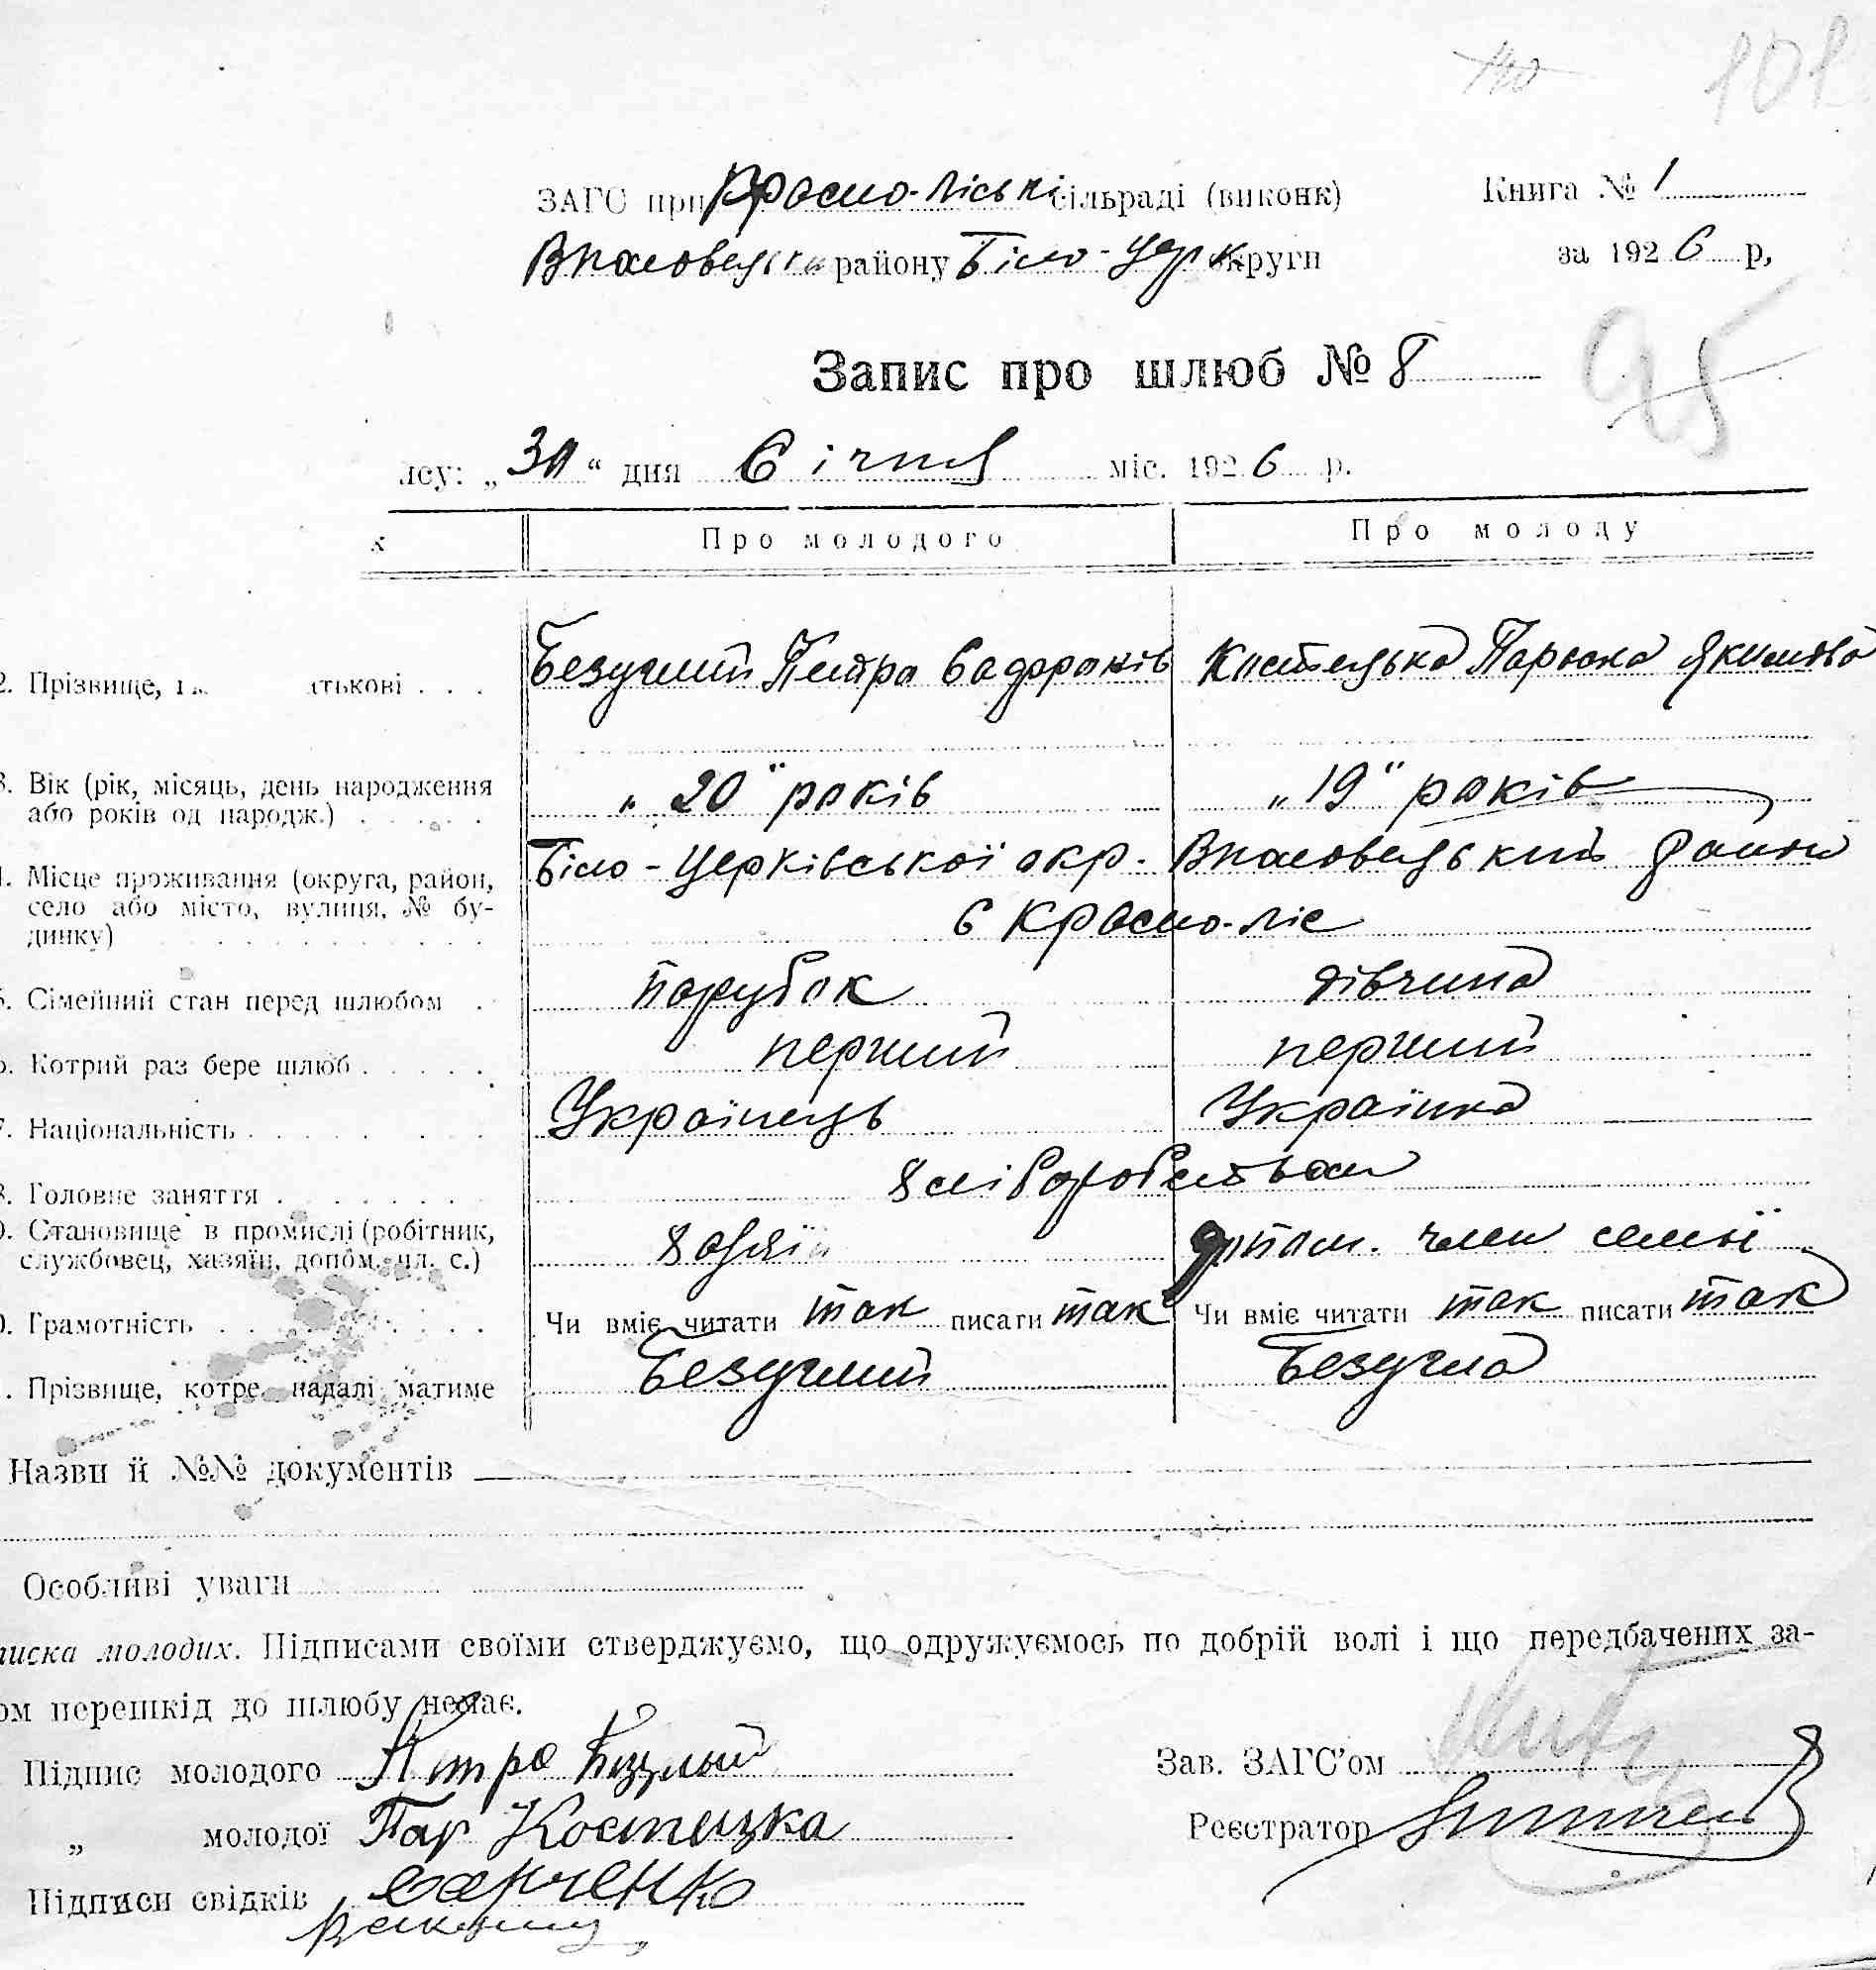 101
ЗАГС при Красно-Ліські сільраді (виконк) Книга № 1
району Біло-Церк округи за 1926 р,
Запис про шлюб № 8
95
лсу: „30“ дня Січня міс. 1926 р.
Про молодого Про молоду
2. Прізвище, атькові . . . Безуглий Петро Костецька Параска Якимова
3. Вік (рік, місяць, день народження „20“ років „19“ років
або років од народж.) . . . . .
4. Місце проживання (округа, район, Біло-Церківської окр. район
село або місто, вулиця, № бу- с Красно-ліс
динку) . . . . . . . . . .
5. Сімейний стан перед шлюбом . парубок дівчина
6. Котрий раз бере шлюб . . . . . перший перший
7. Національність . . . . . . . Українець Українка
8. Головне заняття . . . . . . . хліборобством
9. Становище в промислі (робітник, хазяїн допом. член семьї
службовец, хазяїн, допом. чл. с.)
0. Грамотність . . . . . . . . Чи вміє читати так писати так Чи вміє читати так писати так
. Прізвище, котре надалі матиме Безуглий Безугла
Назви й №№ документів
Особливі уваги
писка молодих. Підписами своїми стверджуємо, що одружуємось по добрій волі і що передбачених за-
ом перешкід до шлюбу немає.
Підпис молодого Петро Зав. ЗАГС’ом
„ молодої Пар Костецка Реєстратор
Підписи свідків